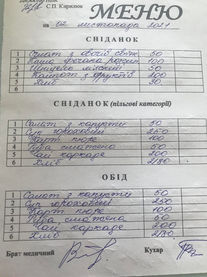 С.П. Кирилюк
МЕНЮ
на 02 листопада 2021
СНІДАНОК
1 Салат з овочів свіж 50
2 Каша гречана 100
3 150
4 Компот з фруктів 200
5 Хліб 30
6
СНІДАНОК (пільгові категорії)
1 Салат з капусти 50
2 Суп гороховий 250
3 Карт пюре 100
4 Риба 50
5 Чай каркаде 200
6 Хліб 2/30
ОБІД
1 Салат з капусти 50
2 Суп гороховий 250
3 Карт пюре 100
4 Риба 50
5 Чай каркаде 200
6 Хліб 2/30
Брат медичний Кухар